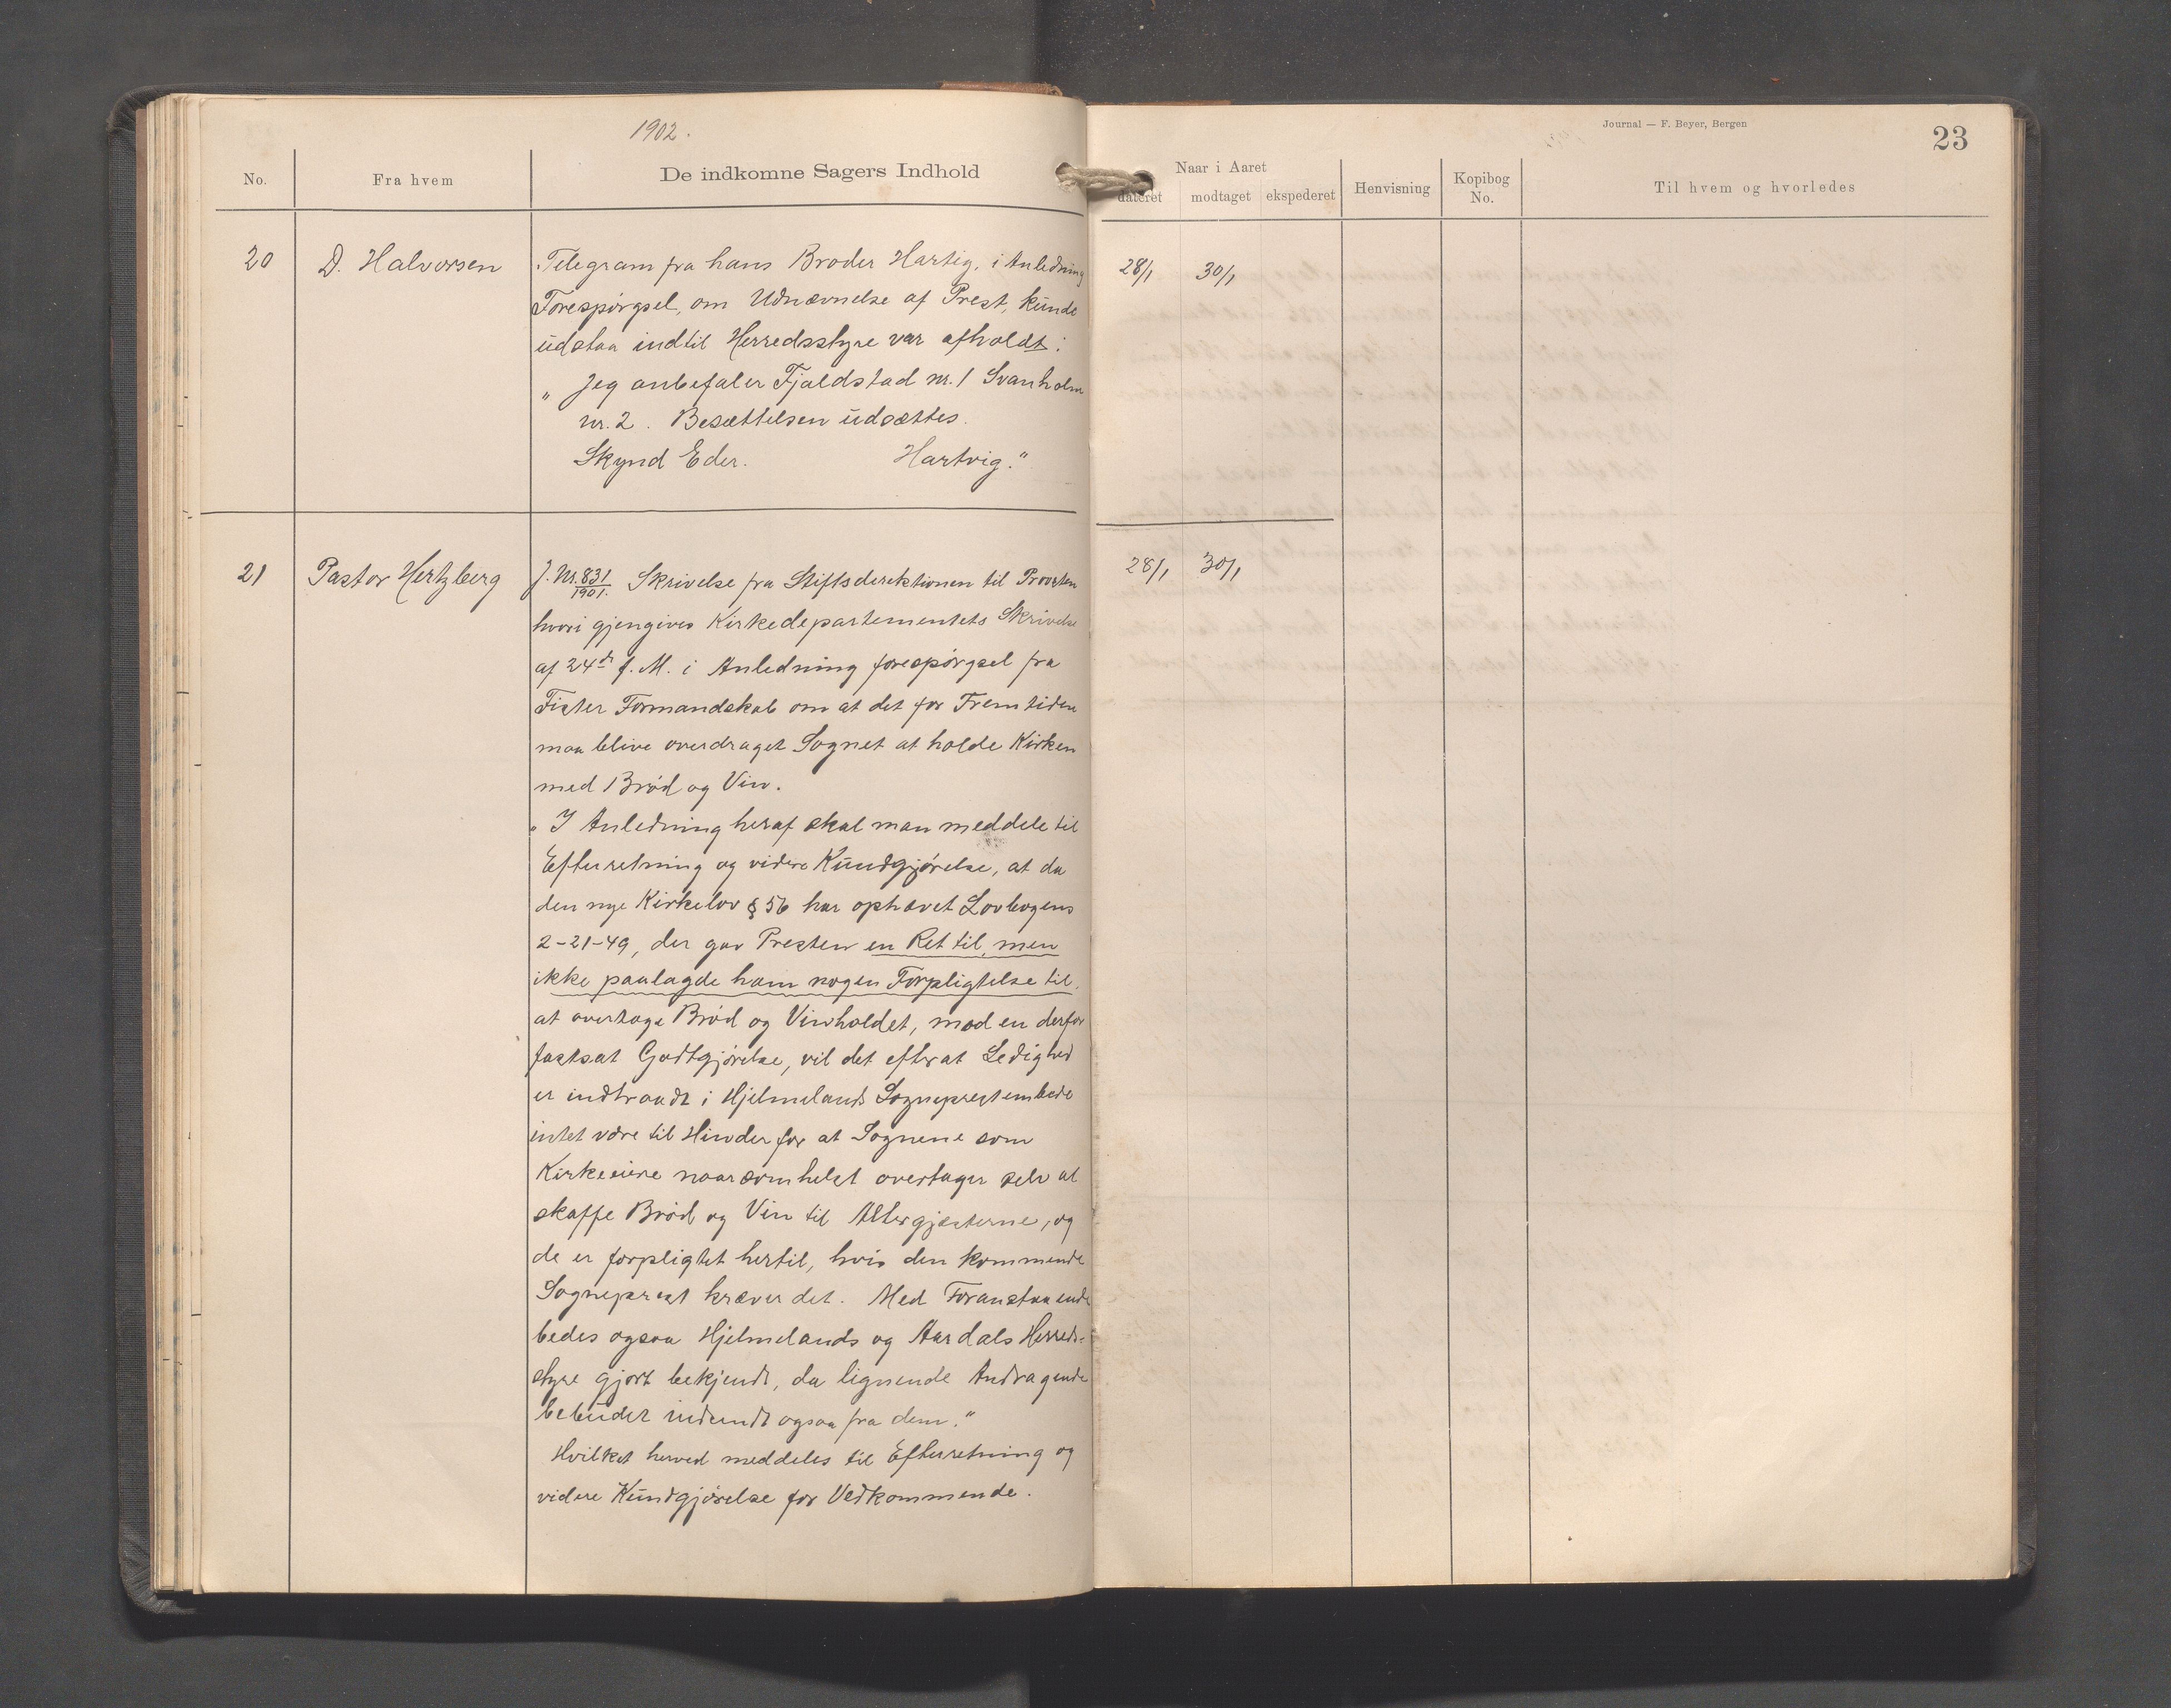 1902.
No.
Fra hvem
De indkomne Sagers Indhold
20
D. Halvorsen
Telegram fra hans Broder Hartig, i Anledning
Forespørgsel, om Udnævnelse af Prest, kunde
udstaa indtil Herredsstyre var afholdt:
„ Jeg anbefaler Fjaldstad nr. 1 Svanholm
nr. 2. Besættelsen udsættes.
Skynd Eder. Hartvig."
21
Pastor Hertzberg
J. Nr. 831/1901. Skrivelse fra Stiftsdirektionen til Provsten
hvori gjengives Kirkedepartementets Skrivelse
af 24de f. M. i Anledning forespørgsel fra
Fister Formandskab om at det for Fremtiden
maa blive overdraget Sognet at holde Kirken
med Brød og Vin.
„ I Anledning heraf skal man meddele til
Efterretning og videre Kundgjørelse, at da
den nye Kirkelov § 56 har ophævet Lovbogens
2-21-49, der gav Presten en Ret til, men
ikke paalagde ham nogen Forpligtelse til,
at overtage Brød og Vinholdet, mod en derfor
fastsat Godtgjørelse, vil det efterat Ledighed
er indtraadt i Hjelmelands Sogneprestembede
intet være til Hinder for at Sognene som
Kirkeeiere naarsomhelst overtager selv at
skaffe Brød og Vin til Altergjæsterne, og
de er forpligtet hertil, hvis den kommende
Sogneprest kræver det. Med Foranstaaende
bedes ogsaa Hjelmelands og Aardals Herreds-
styre gjort bekjendt, da lignende Andragende
bebudet indsendt ogsaa fra dem."
Hvilket herved meddeles til Efterretning og
videre Kundgjørelse for Vedkommende.
Journal — F. Beyer, Bergen
23
Naar i Aaret
dateret
modtaget
ekspederet
Henvisning
Kopibog
No.
Til hvem og hvorledes
28/1 30/1
28/1 30/1